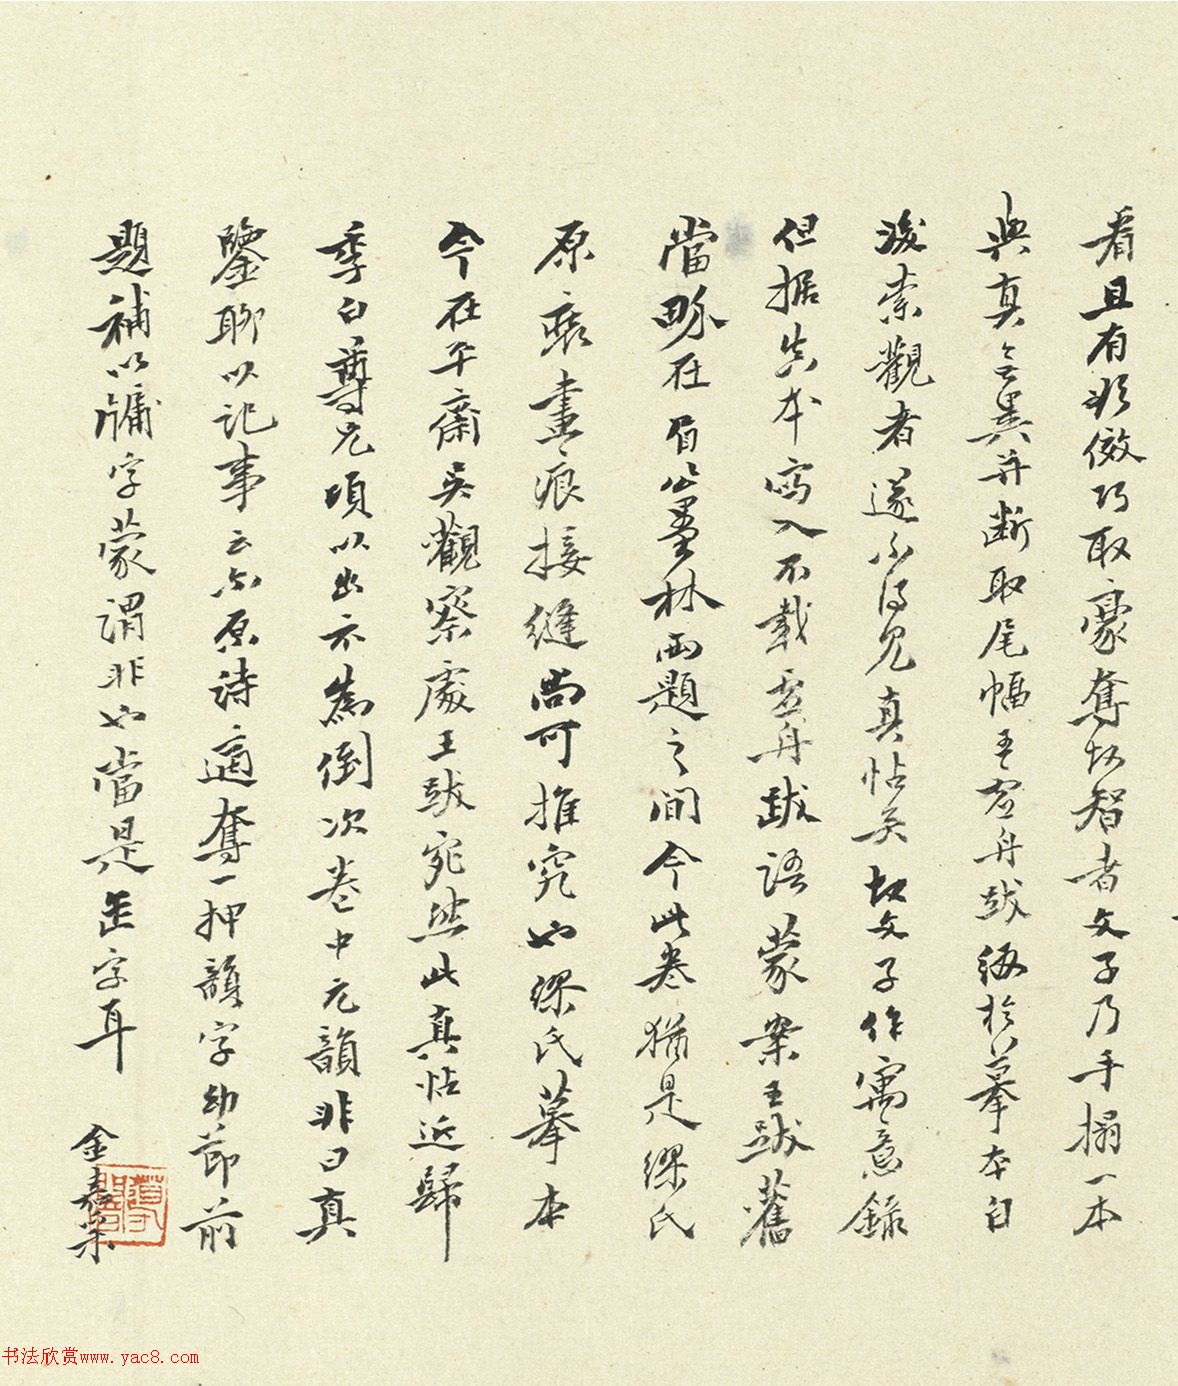 看且有欲倣巧取豪奪故智者文子乃手搨一本
與真無異并斷取尾幅王虛舟跋綴於摹本自
後索觀者遂不得見真帖矣故文子作寓意錄
但据失本寫入不載虛舟跋語蒙案王跋舊
當駢在眉公墨林兩題之間今此卷猶是繆氏
原裝畫痕接縫尚可推究也繆氏摹本
今在平齋吳觀察處王跋宛然此真帖近歸
季白尊兄項以出示為倒次卷中元韻非曰真
鑒聊以記事云尔原詩適奪一押韻字幼節前
題補以牖字蒙謂非也當是缶字耳
金嘉采
书法欣赏www.yac8.com